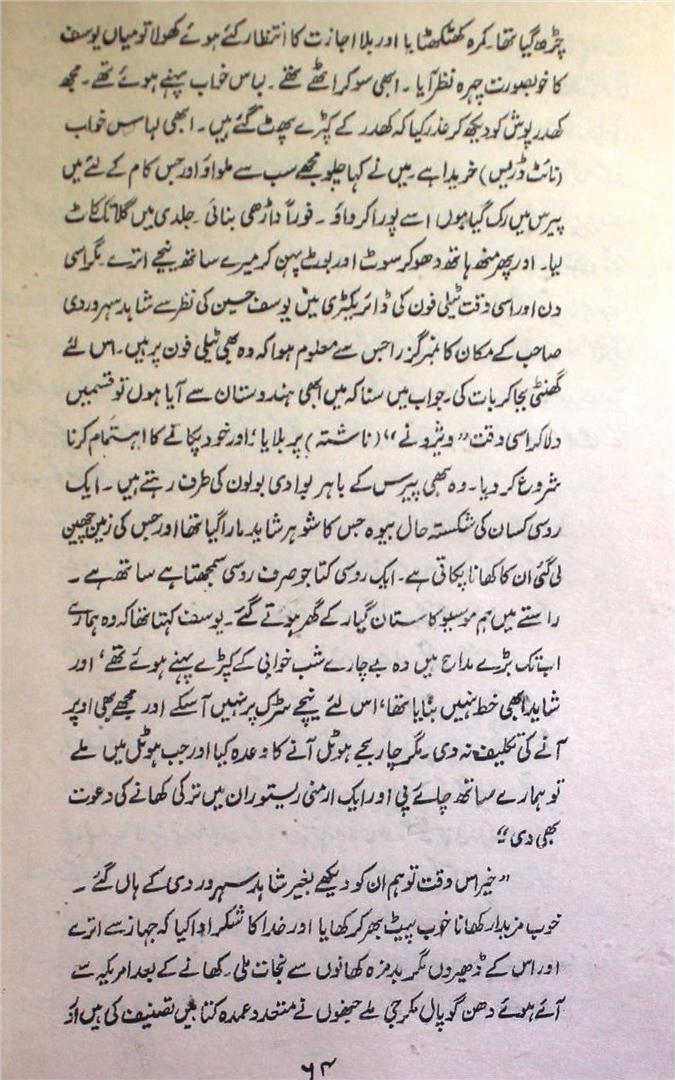 چڑھ گیا تھا۔ کمرہ کھٹکھٹایا اور بلا اجازت کا انتظار کئے ہوئے کھولا تو میاں یوسف
کا خوبصورت چہرہ نظر آیا ۔ ابھی سو کر اٹھے تھے ۔ لباس خواب پہنے ہوئے تھے ۔ مجھ
کھدر پوش کو دیکھ کر عذر کیا کہ کھدر کے کپڑے پھٹ گئے ہیں ۔ ابھی لباس خواب
(نائٹ ڈریس) خریدا ہے ۔ میں نے کہا چلو مجھے سب سے ملواؤ اور جس کام کے لئے میں
پیرس میں رک گیا ہوں اسے پورا کرواؤ ۔ فوراً داڑھی بنائی ۔ جلدی میں گلا تک کاٹ
لیا۔ اور پھر منھ ہاتھ دھو کر سوٹ اور بوٹ پہن کر میرے ساتھ نیچے اترے ۔ مگر اسی
دن اور اسی وقت ٹیلی فون کی ڈائریکٹری میں یوسف حسین کی نظر سے شاہد سہروردی
صاحب کے مکان کا نمبر گزرا جس سے معلوم ہوا کہ وہ بھی ٹیلی فون پر ہیں ۔ اس لئے
گھنٹی بجا کر بات کی ۔ جواب میں سنا کہ میں ابھی ہندوستان سے آیا ہوں تو قسمیں
دلا کر اسی وقت ”ویژونے“ (ناشتہ) پر بلایا ؛ اور خود پکانے کا اہتمام کرنا
شروع کر دیا ۔ وہ بھی پیرس کے باہر بوا دی بولون کی طرف رہتے ہیں ۔ ایک
روسی کسان کی شکستہ حال بیوہ جس کا شوہر شاید مارا گیا تھا اور جس کی زمین چھین
لی گئی ان کا کھانا پکاتی ہے ۔ ایک روسی کتا جو صرف روسی سمجھتا ہے ساتھ ہے ۔
راستے میں ہم موسیو کاستان گیار کے گھر ہوتے گئے ۔ یوسف کہتا تھا کہ وہ ہمارے
اب تک بڑے مداح ہیں وہ بے چارے شب خوابی کے کپڑے پہنے ہوئے تھے ، اور
شاید ابھی خط نہیں بنایا تھا ، اس لئے نیچے سڑک پر نہیں آ سکے اور مجھے بھی اوپر
آنے کی تکلیف نہ دی ۔ مگر چار بجے ہوٹل آنے کا وعدہ کیا اور جب ہوٹل میں ملے
تو ہمارے ساتھ چائے پی اور ایک ارمنی ریستوران میں ترکی کھانے کی دعوت
بھی دی “
”خیر اس وقت تو ہم ان کو دیکھے بغیر شاہد سہروردی کے ہاں گئے ۔
خوب مزیدار کھانا خوب پیٹ بھر کر کھایا اور خدا کا شکر ادا کیا کہ جہاز سے اترے
اور اس کے ڈھیروں مگر بدمزہ کھانوں سے نجات ملی ۔ کھانے کے بعد امریکہ سے
آئے ہوئے دھن گوپال مکرجی ملے جنھوں نے متعدد عمدہ کتابیں تصنیف کی ہیں اور
۶۴